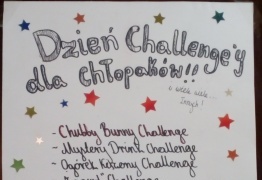 Dzień Challenge'y
dla Chłopaków!!
a wiele wiele...
Innych!
- Chubby Bunny Challenge
- Mystery Drink Challenge
- Ogórek Kiszony Challenge
Challenge